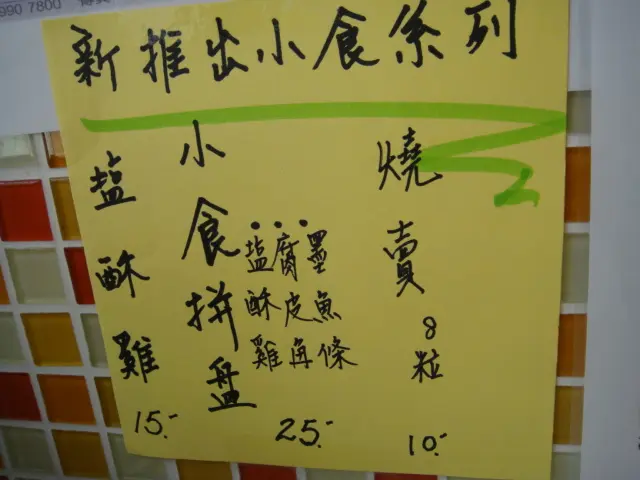 990 7800
新推出小食系列
燒賣8粒
10.-
小食拼盤
墨魚條
腐皮角
塩酥雞
25.-
塩酥雞
15.-